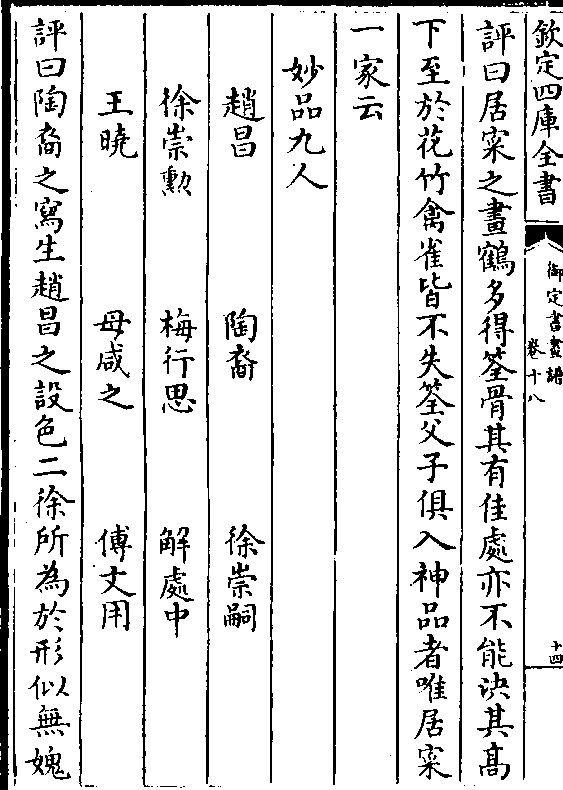 欽定四庫全書
御定書畫譜
卷十八
十四
評曰居寀之畫鶴多得筌骨其有佳處亦不能決其高
下至於花竹禽雀皆不失筌父子俱入神品者唯居寀
一家云
妙品九人
趙昌 陶裔 徐崇嗣
徐崇勲 梅行思 解處中
王曉 母咸之 傅文用
評曰陶裔之寫生趙昌之設色二徐所為於形似無媿